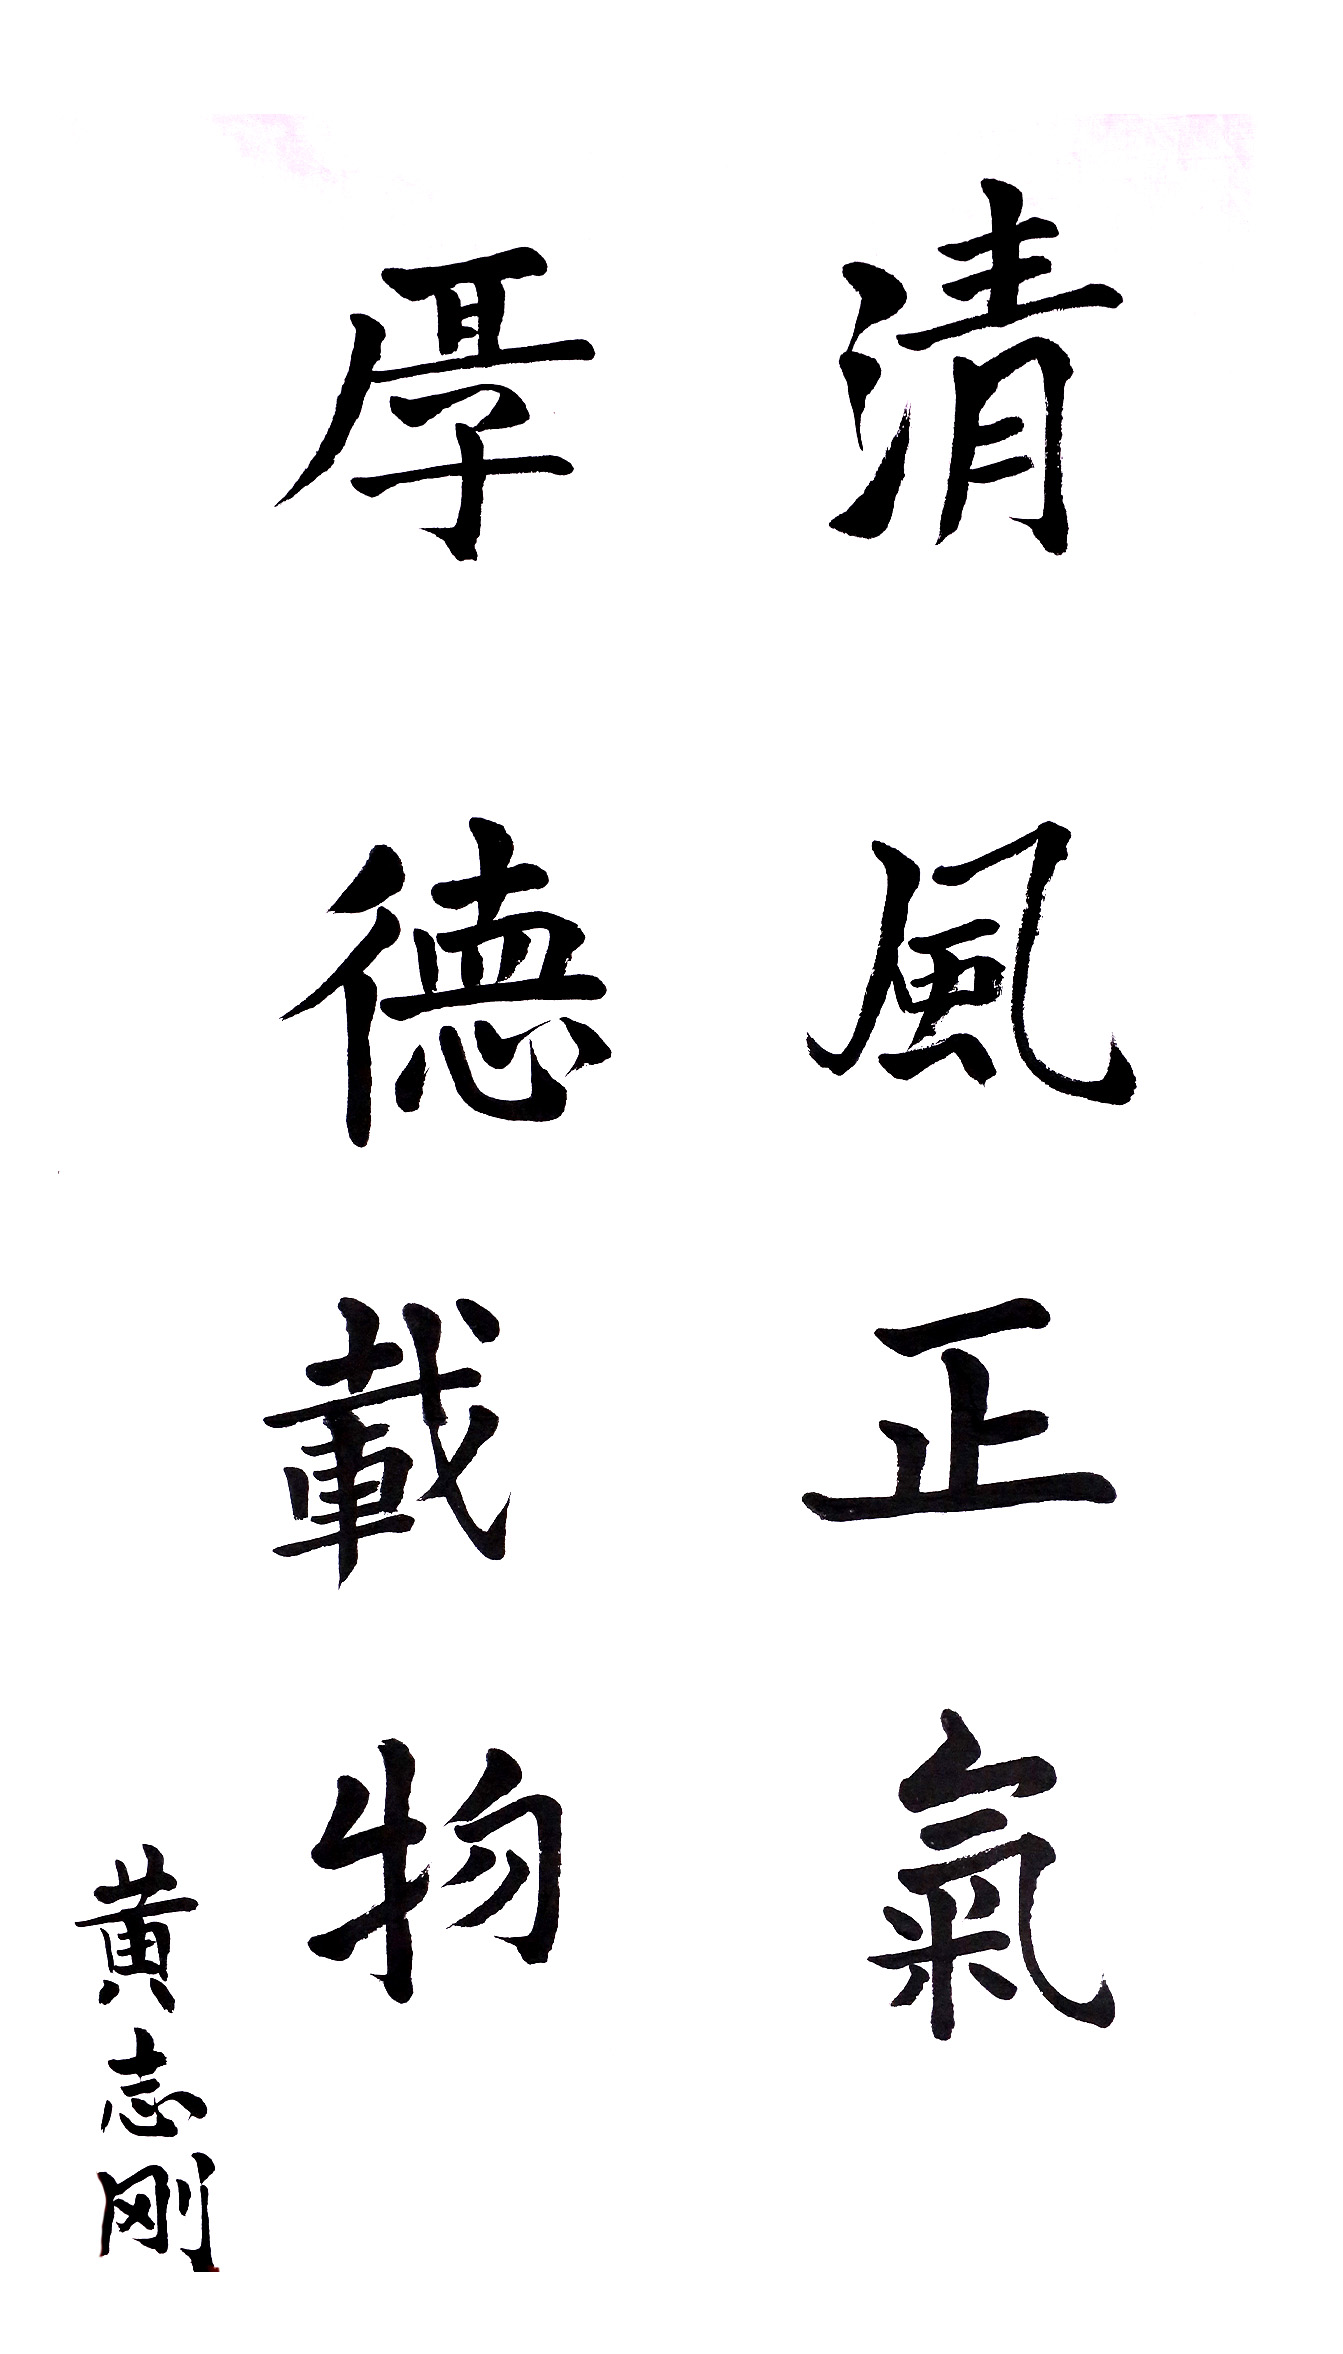 清風正氣
厚德載物
黄志刚